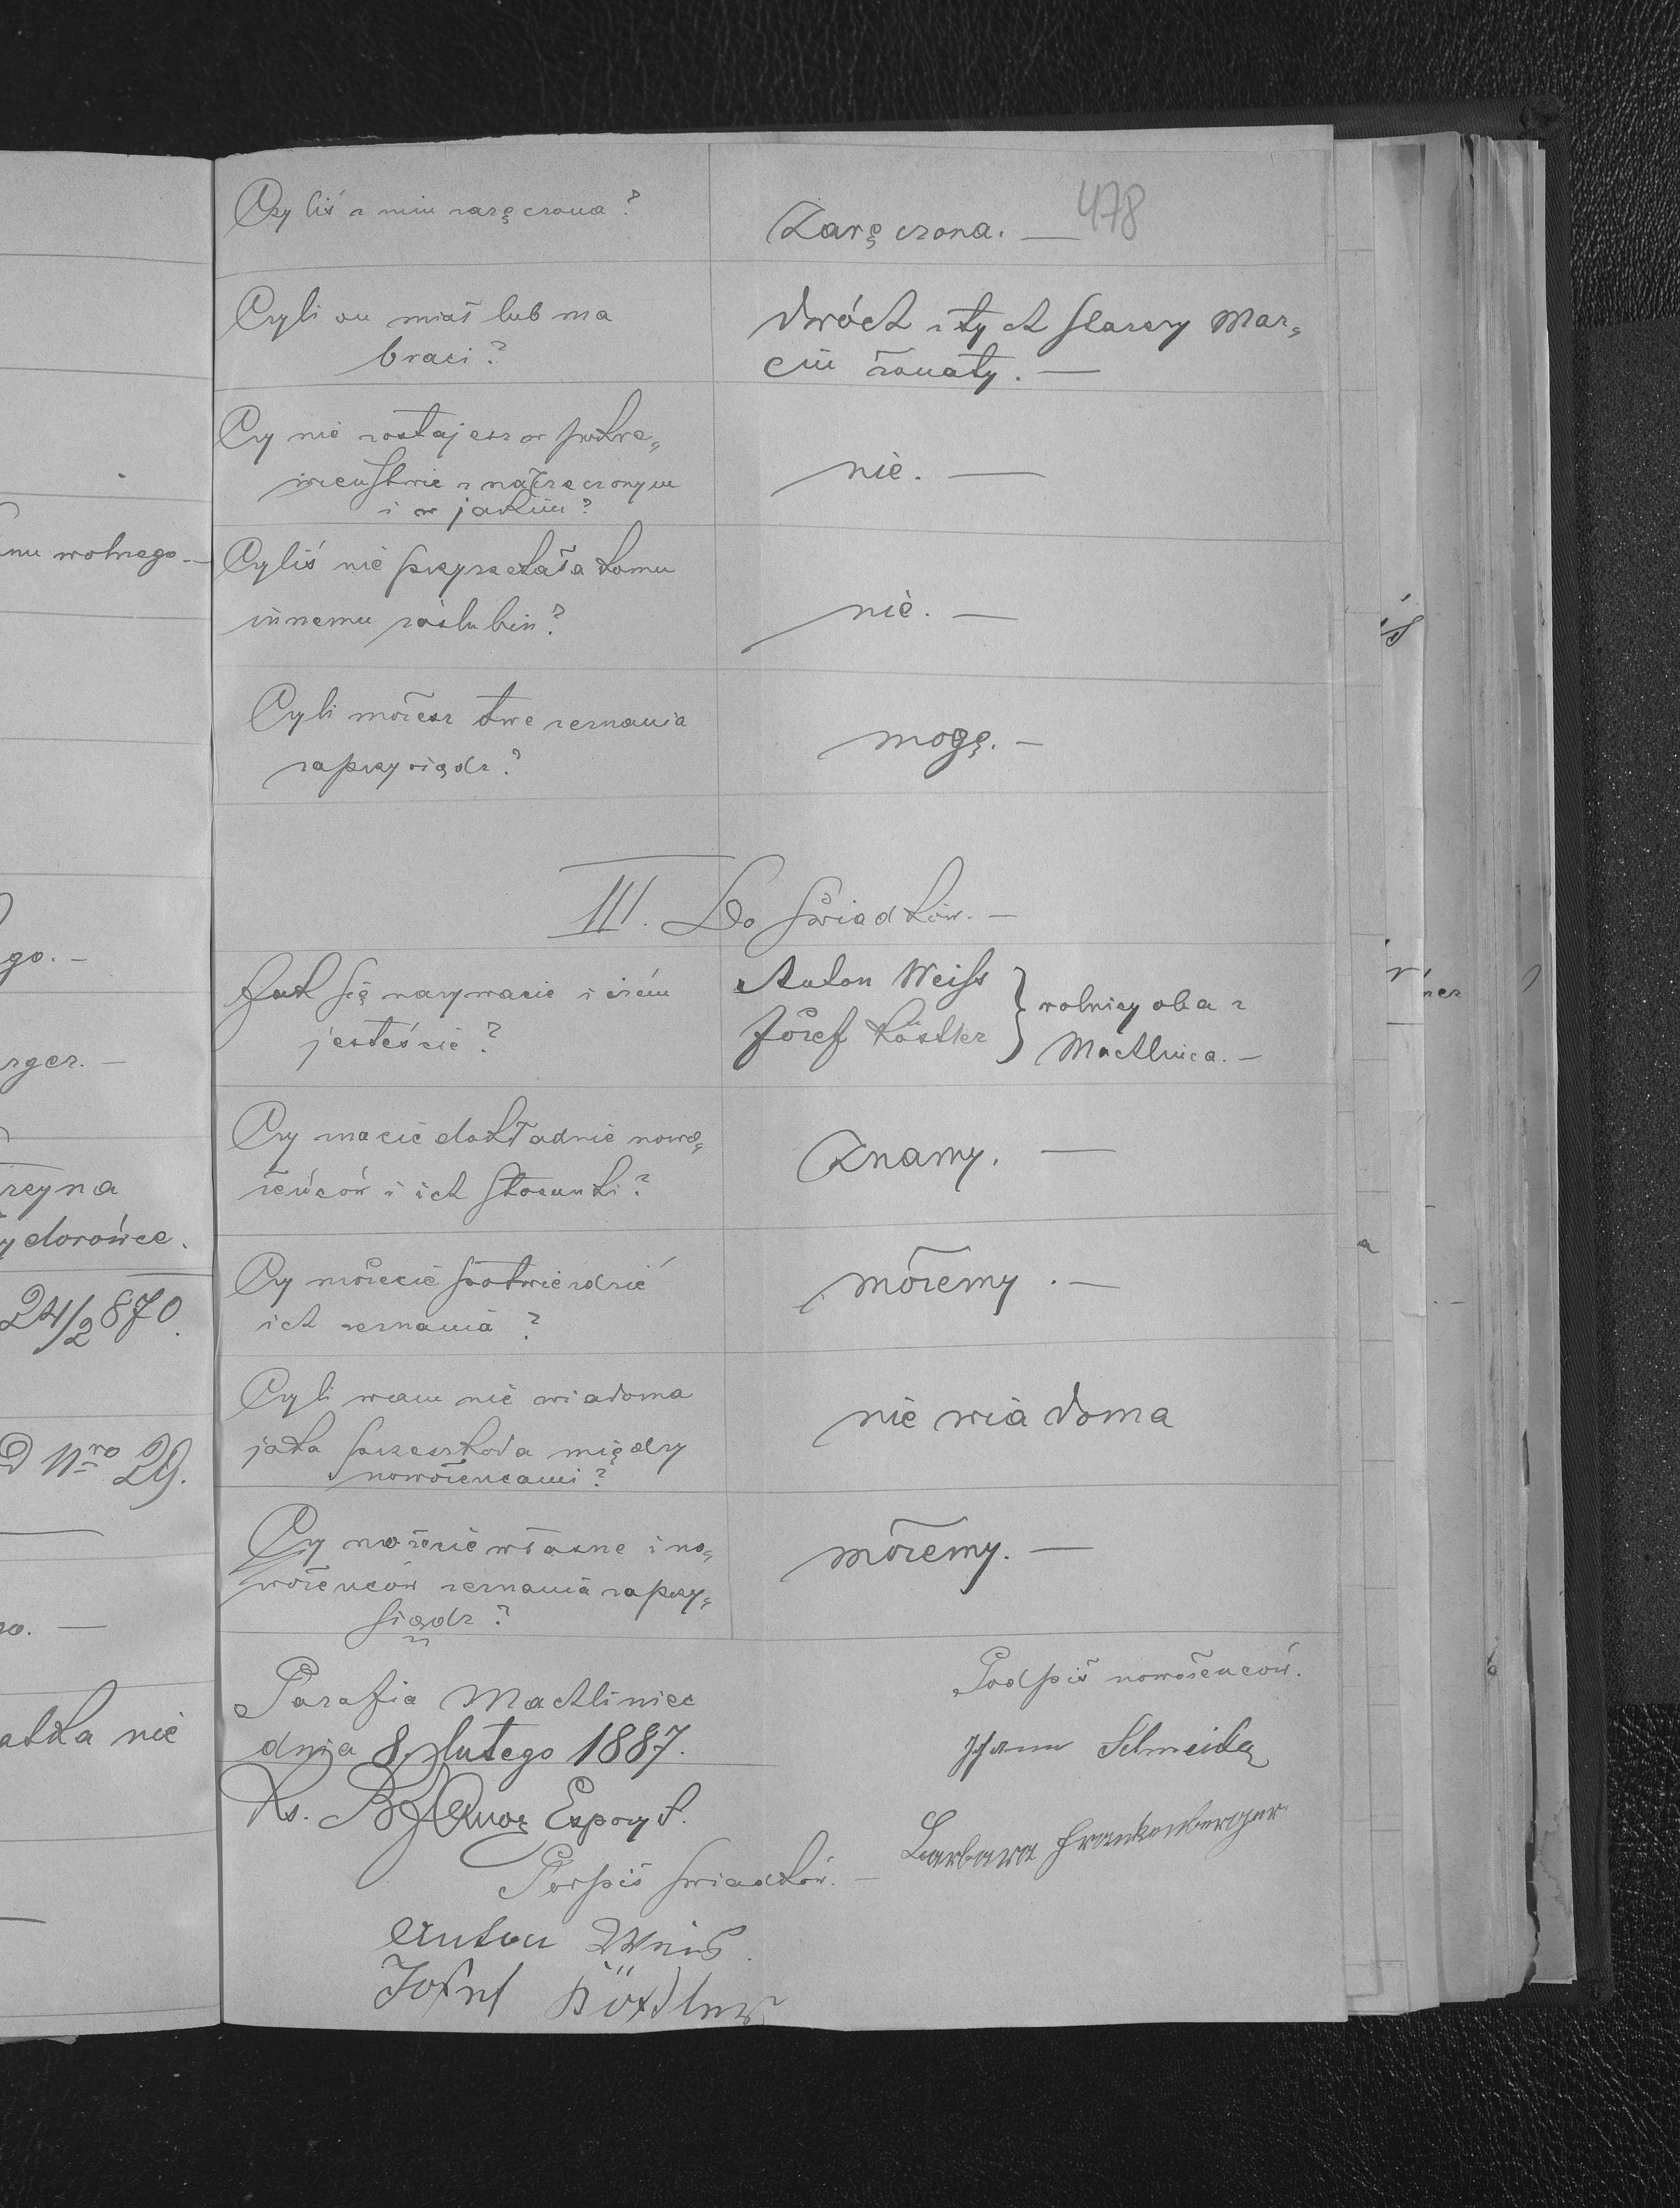 478
Czyliś z nim zaręczona?
Zaręczona. —
Czyli on miał lub ma
braci?
dwóch z tych starszy Mar„
cin żonaty. —
Czy nie zostajesz w pokre„
wieństwie z narzeczonym
i w jakim?
nie. —
Czyliś nie przyrzekała komu
innemu zaślubin?
nie. —
Czyli możesz twe zeznania
zaprzysiądz?
mogę. —
III. Do świadków. —
Jak się nazywacie i czém
jesteście?
Anton Weiss
Józef Köstler
wolnicy oba z
Machlinca. —
Czy znacie dokładnie nowo„
żeńców i ich stosunki?
Znamy. —
Czy możecie potwierdzić
ich zeznania?
możemy. —
Czyli wam nie wiadoma
jaka przeszkoda między
nowożeńcami?
nie wiadoma
Czy możecie własne i no„
wożeńców zeznania zaprzy„
siądz?
możemy. —
Parafia Machliniec
dnia 8. lutego 1887.
Ks. Expozyt.
Podpis nowożeńców.
Johann Schneider
Barbara Frankenberger
Podpis świadków. —
Anton Weiss
Josef Köstler
nu wolnego. —
go. —
rger. —
rzyna
ydorówce.
24/2 870.
Nro 29.
atka nie